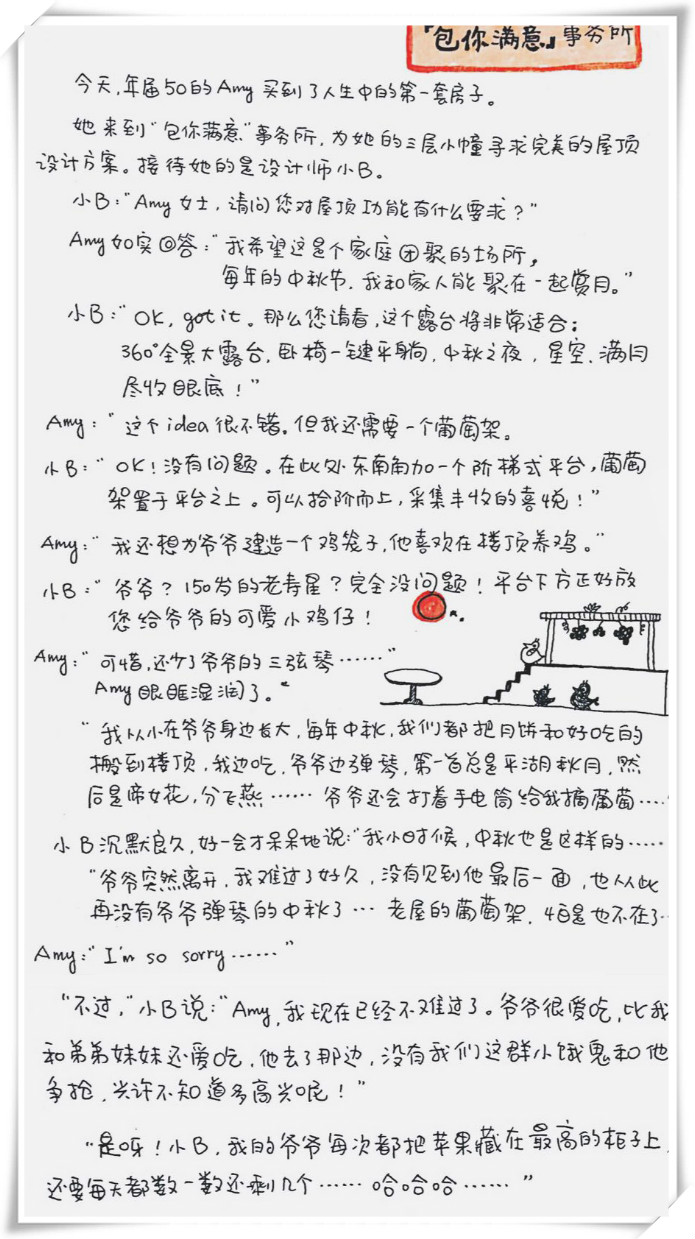 『包你满意』事务所
今天,年届50的Amy 买到了人生中的第一套房子。
她来到“包你满意”事务所,为她的三层小幢寻求完美的屋顶
设计方案。接待她的是设计师小B。
小B:“Amy 女士,请问您对屋顶功能有什么要求?”
Amy如实回答:“我希望这是个家庭团聚的场所,
每年的中秋节,我和家人能聚在一起赏月。”
小B:“OK, got it。那么您请看,这个露台将非常适合:
360°全景大露台,卧椅一键平躺,中秋之夜,星空、满月
尽收眼底!”
Amy:“这个idea很不错。但我还需要一个葡萄架。
小B:“OK!没有问题。在此处东南角加一个阶梯式平台,葡萄
架置于平台之上。可以拾阶而上,采集丰收的喜悦!”
Amy:“我还想为爷爷建造一个鸡笼子,他喜欢在楼顶养鸡。”
小B:“爷爷?150岁的老寿星?完全没问题!平台下方正好放
您给爷爷的可爱小鸡仔!
Amy:“可惜,还少了爷爷的三弦琴……”
Amy眼眶湿润了。“
“我从小在爷爷身边长大,每年中秋,我们都把月饼和好吃的
搬到楼顶,我边吃,爷爷边弹琴,第一首总是平湖秋月,然
后是帝女花,分飞燕……爷爷还会打着手电筒给我摘葡萄…
小B沉默良久,好一会才呆呆地说:“我小时候,中秋也是这样的……
“爷爷突然离开,我难过了好久,没有见到他最后一面,也从此
再没有爷爷弹琴的中秋了…老屋的葡萄架,怕是也不在了…
Amy:“I'm so sorry……”
“不过,”小B说:“Amy,我现在已经不难过了。爷爷很爱吃,比我
和弟弟妹妹还爱吃,他去了那边,没有我们这群小饿鬼和他
争抢,兴许不知道多高兴呢!”
“是呀!小B,我的爷爷每次都把苹果藏在最高的柜子上,
还要每天都数一数还剩几个……哈哈哈……”